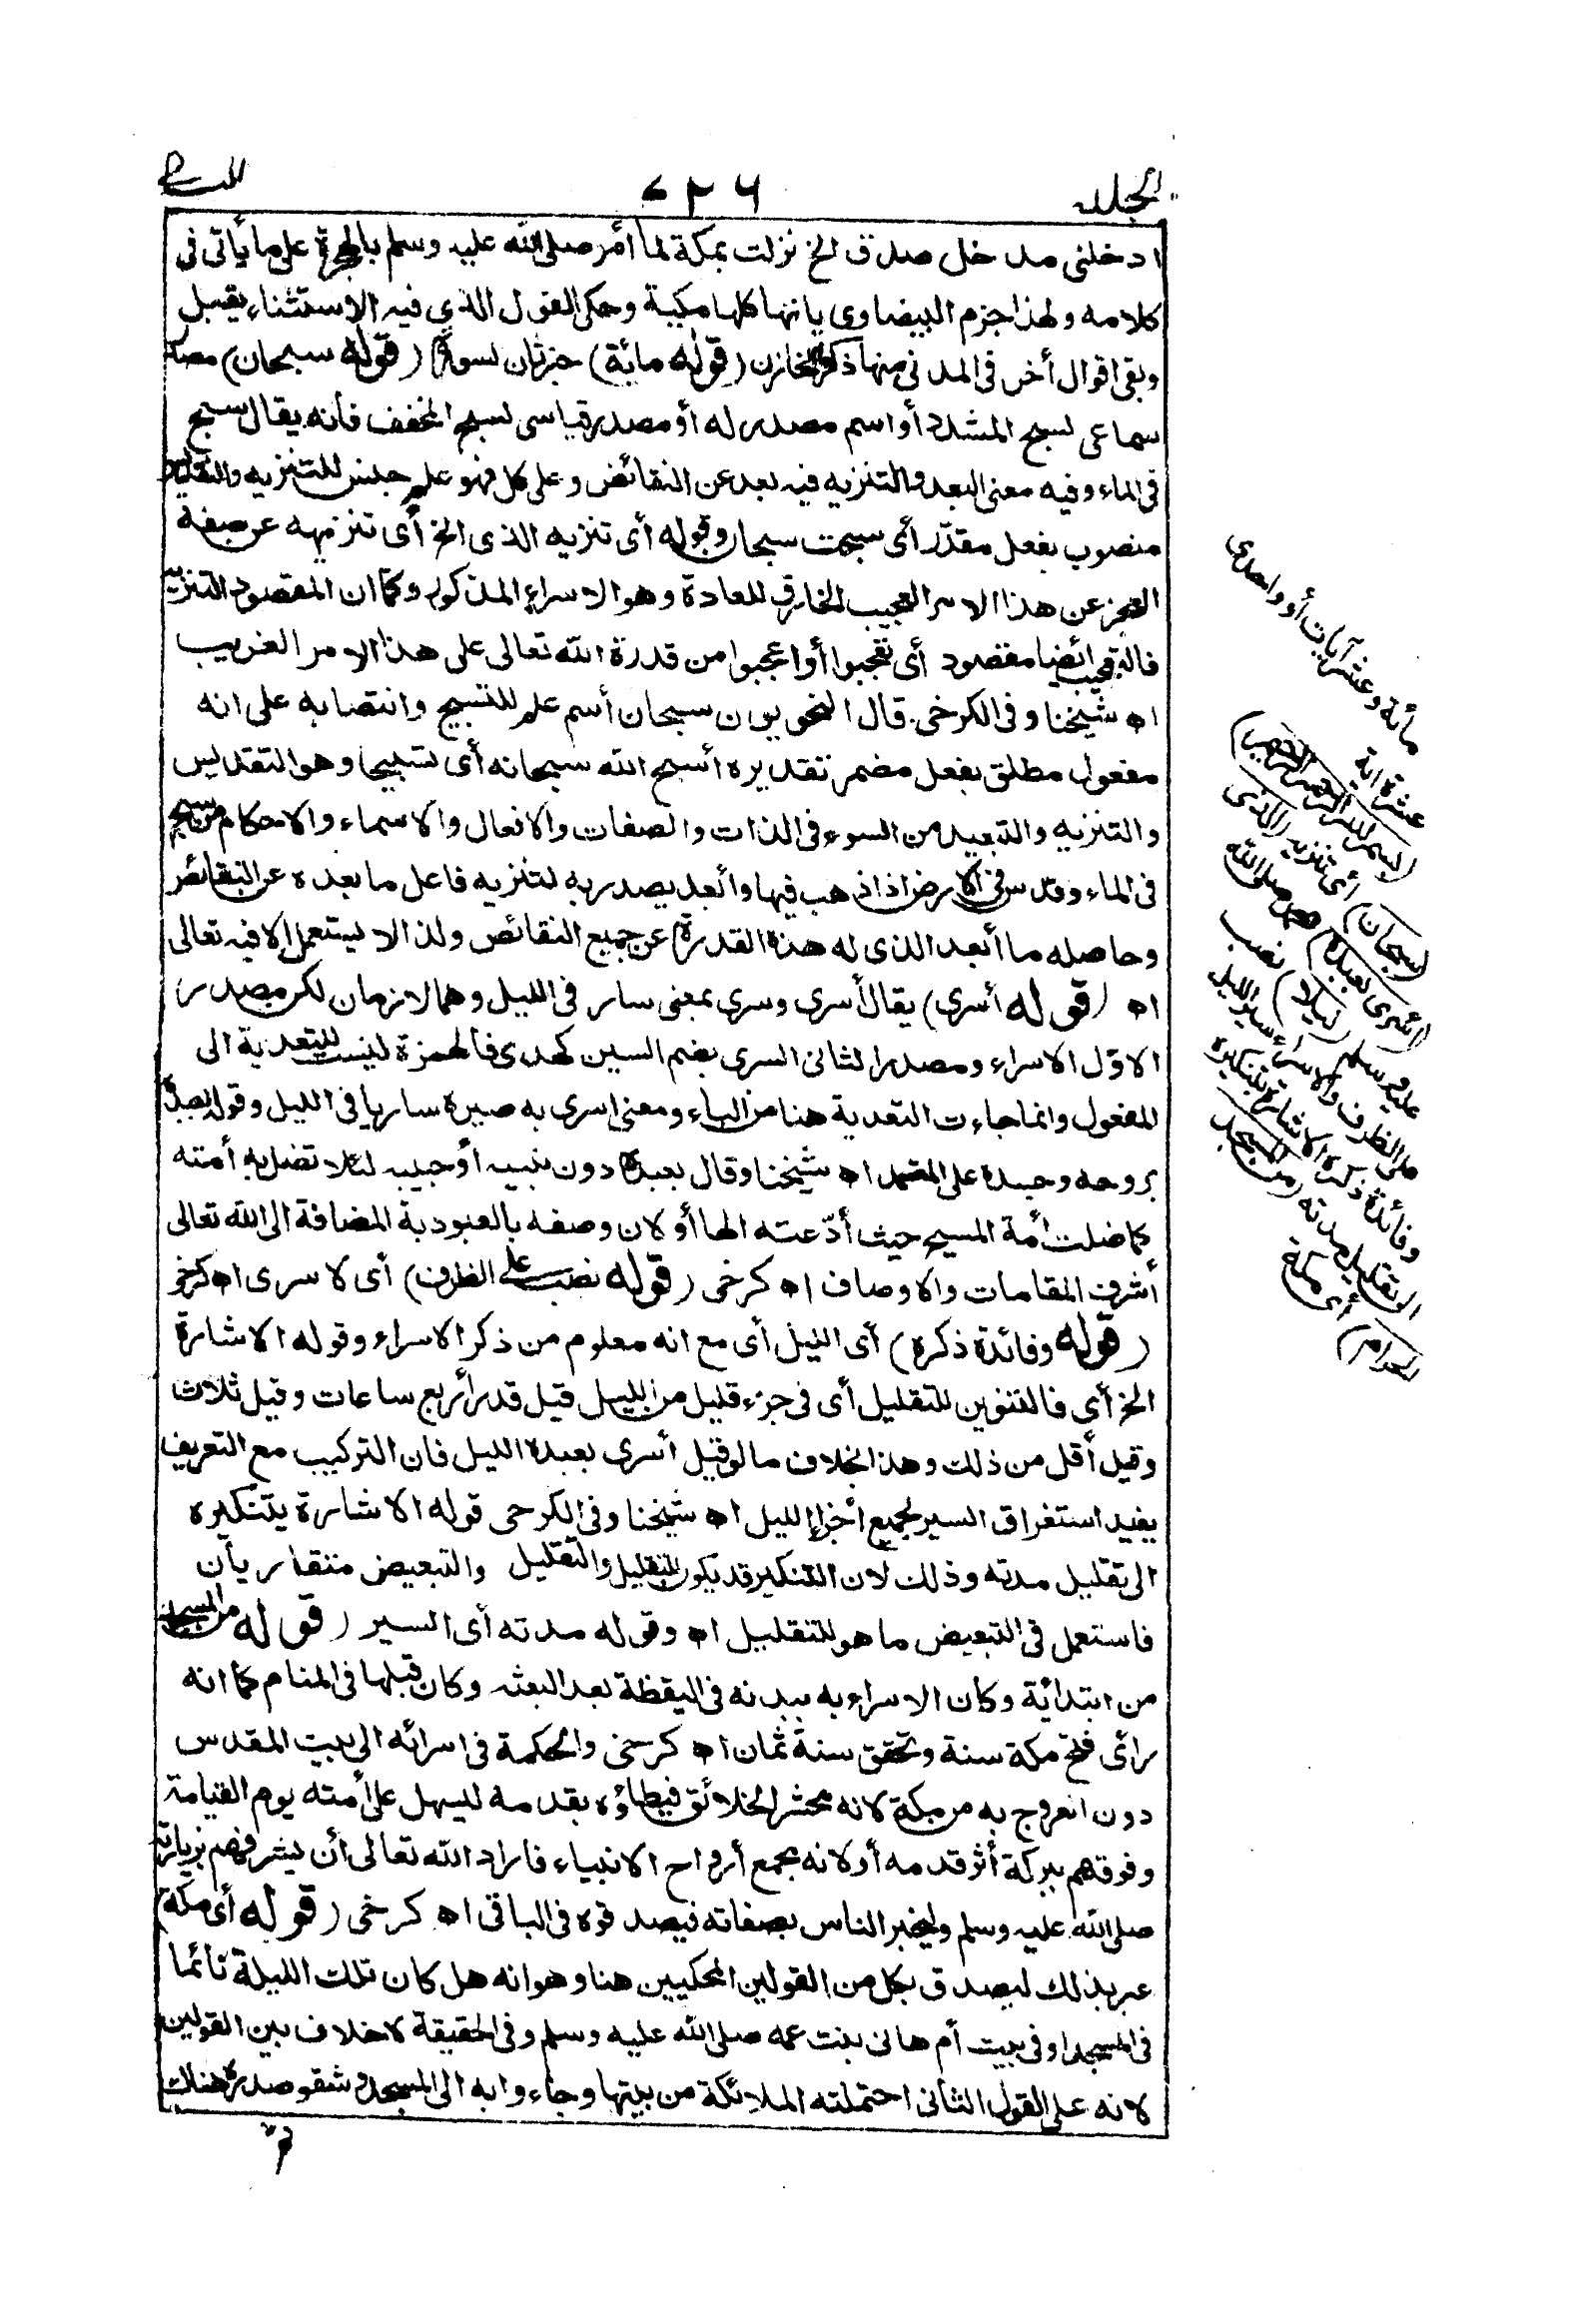 الجلد
٧٢٦
ادخلنى مدخل صدق الخ نزلت بمكة لما أمر صلى الله عليه وسلم بالهجرة على ما يأتى فى
كلامه ولهذا جزم البيضاوى بانها كلها مكية وحكى القول الذى فيه الاستثناء بقيل
وبقى اقوال أخر فى المدنى منها ذكرها الخازن (قوله مائة) خبر ثان لسورة (قوله سبحان) مصدر
سماعى لسبح المشدد أو اسم مصدر له أو مصدر قياسى لسبح المخفف فانه يقال سبح
فى الماء وفيه معنى البعد والتنزيه فيه بعد عن النقائض وعلى كل فهو علم جنس للتنزيه والتقديس
منصوب بفعل مقدّر أى سبحت سبحان وقوله أى تنزيه الذى الخ أى تنزيهه عن صفة
العجز عن هذا الامر العجيب الخارق للعادة وهو الاسراء المذكور وكما ان المقصود التنزيه
فالتعجيب أيضا مقصود أى تعجبوا أو اعجبوا من قدرة الله تعالى على هذا الامر الغريب
اه شيخنا وفى الكرخى قال النحويون سبحان أسم علم للتسبيح وانتصابه على انه
مفعول مطلق بفعل مضمر تقديره أسبح الله سبحانه أى تسبيحا وهو التقديس
والتنزيه والتبعيد من السوء فى الذات والصفات والافعال والاسماء والاحكام من سبح
فى الماء وقدس فى الارض اذا ذهب فيها وأبعد يصدر به لتنزيه فاعل ما بعده عن النقائص
وحاصله ما أبعد الذى له هذه القدرة عن جميع النقائص ولذا لا يستعمل الا فيه تعالى
اه (قوله أسرى) يقال أسرى وسرى بمعنى سار فى الليل وهما لازمان لكن مصدر
الاوّل الاسراء ومصدر الثانى السرى بضم السين كهدى فالهمزة ليست للتعدية الى
المفعول وانما جاءت التعدية هنا من الباء ومعنى اسرى به صيره ساريا فى الليل وقوله بعبده
بروحه وجسده على المعتمد اه شيخنا وقال بعبده دون نبيه أو حبيبه لئلا تضل به أمته
كما ضلت أمة المسيح حيث أدّعته الها أو لان وصفه بالعبودية المضافة الى الله تعالى
أشرف المقامات والاوصاف اه كرخى (قوله نصب على الظرف) أى لاسرى اه كرخى
(قوله وفائدة ذكره) أى الليل أى مع انه معلوم من ذكر الاسراء وقوله الاشارة
الخ أى فالتنوين للتقليل أى فى جزء قليل من الليل قيل قدر أربع ساعات وقيل ثلاث
وقيل أقل من ذلك وهذا بخلاف ما لو قيل أسرى بعبده الليل فان التركيب مع التعريف
يفيد استغراق السير لجميع أجزاء الليل اه شيخنا وفى الكرخى قوله الاشارة بتنكيره
الى تقليل مدته وذلك لان التنكير قد يكون للتقليل والتقليل والتبعيض متقاربان
فاستعمل فى التبعيض ما هو للتقليل اه وقوله مدته أى السير (قوله من المسجد
من ابتدائية وكان الاسراء به ببدنه فى اليقظة بعد البعثه وكان قبلها فى المنام كما انه
رأى فتح مكة سنة وتحقق سنة ثمان اه كرخى والحكمة فى اسرائه الى بيت المقدس
دون العروج به من مكة لانه محشر الخلائق فيطاؤه بقدمه ليسهل على أمته يوم القيامة
وفوقهم ببركة أثر قدمه أو لانه مجمع أرواح الانبياء فاراد الله تعالى أن يشرفهم بزيارته
صلى الله عليه وسلم وليخبر الناس بصفاته فيصدقوه فى الباقى اه كرخى (قوله أى مكة)
عبر بذلك ليصدق بكل من القولين المحكيين هنا وهو انه هل كان تلك الليلة نائما
فى المسجد او فى بيت أم هانى بنت عمه صلى الله عليه وسلم وفى الحقيقة لا خلاف بين القولين
لانه على القول الثانى احتملته الملائكة من بيتها وجاءوا به الى المسجد وشقو صدره هناك
مأئة وعشر آيات أو واحدى
عشرة اية
(بسم الله الرحمن الرحيم)
(سبحان) أى تنزيه (الذى
أسرى بعبده) محمد صلى الله
عليه وسلم (ليلا) نصب
على الظرف والاسراء سير الليل
وفائدة ذكره الاشارة بتنكيره
الى تقليل مدته (من المسجد
الحرام) أى مكة